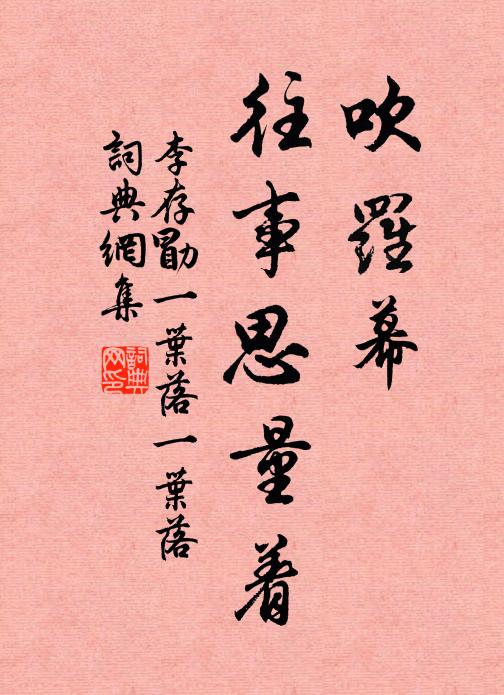 吹羅幕
往事思量着
李存勖一葉落一葉落
詞典網集
詞典網印